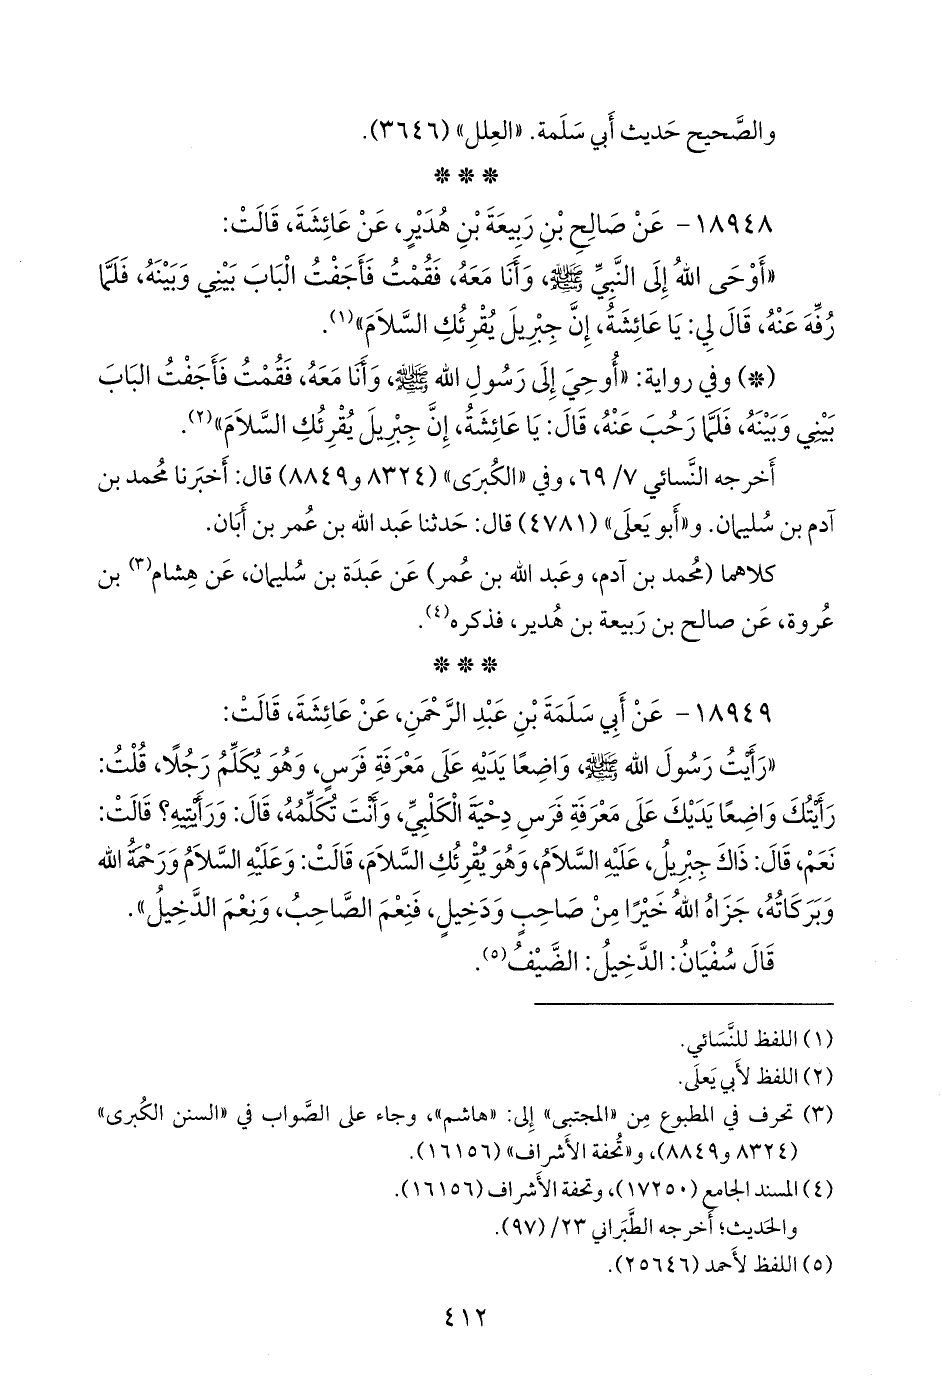 والصَّحيح حَديث أَبي سَلَمة. «العِلل» (٣٦٤٦).
* * *
١٨٩٤٨- عَنْ صَالِحِ بْنِ رَبِيعَةَ بْنِ هُدَيْرٍ، عَنْ عَائِشَةَ، قَالَتْ:
«أَوْحَى اللهُ إِلَى النَّبِيِّ ﷺ، وَأَنَا مَعَهُ، فَقُمْتُ فَأَجَفْتُ الْبَابَ بَيْنِي وَبَيْنَهُ، فَلَمَّا
رُفِّهَ عَنْهُ، قَالَ لِي: يَا عَائِشَةُ، إِنَّ جِبْرِيلَ يُقْرِئُكِ السَّلَامَ»(١).
(*) وفي رواية: «أُوحِيَ إِلَى رَسُولِ الله ﷺ، وَأَنَا مَعَهُ، فَقُمْتُ فَأَجَفْتُ البَابَ
بَيْنِي وَبَيْنَهُ، فَلَمَّا رَحُبَ عَنْهُ، قَالَ: يَا عَائِشَةُ، إِنَّ جِبْرِيلَ يُقْرِئُكِ السَّلَامَ»(٢).
أَخرجه النَّسائي ٧/ ٦٩، وفي «الكُبرَى» (٨٣٢٤ و٨٨٤٩) قال: أَخبَرنا مُحمد بن
آدم بن سُليمان. و«أَبو يَعلَى» (٤٧٨١) قال: حَدثنا عَبد الله بن عُمر بن أَبَان.
كلاهما (مُحمد بن آدم، وعَبد الله بن عُمر) عَن عَبدَة بن سُليمان، عَن هِشام(٣) بن
عُروة، عَن صالح بن رَبيعة بن هُدير، فذكره(٤).
* * *
١٨٩٤٩- عَنْ أَبِي سَلَمَةَ بْنِ عَبْدِ الرَّحْمَنِ، عَنْ عَائِشَةَ، قَالَتْ:
«رَأَيْتُ رَسُولَ الله ﷺ، وَاضِعًا يَدَيْهِ عَلَى مَعْرَفَةِ فَرَسٍ، وَهُوَ يُكَلِّمُ رَجُلًا، قُلْتُ:
رَأَيْتُكَ وَاضِعًا يَدَيْكَ عَلَى مَعْرَفَةِ فَرَسِ دِحْيَةَ الْكَلْبِيِّ، وَأَنْتَ تُكَلِّمُهُ، قَالَ: وَرَأَيْتِيهِ؟ قَالَتْ:
نَعَمْ، قَالَ: ذَاكَ جِبْرِيلُ، عَلَيْهِ السَّلَامُ، وَهُوَ يُقْرِئُكِ السَّلَامَ، قَالَتْ: وَعَلَيْهِ السَّلَامُ وَرَحْمَةُ الله
وَبَرَكَاتُهُ، جَزَاهُ اللهُ خَيْرًا مِنْ صَاحِبٍ وَدَخِيلٍ، فَنِعْمَ الصَّاحِبُ، وَنِعْمَ الدَّخِيلُ».
قَالَ سُفْيَانُ: الدَّخِيلُ: الضَّيْفُ(٥).
(١) اللفظ للنَّسَائي.
(٢) اللفظ لأَبي يَعلَى.
(٣) تحرف في المطبوع مِن «المجتبى» إِلى: «هاشم»، وجاء على الصَّواب في «السنن الكُبرى»
(٨٣٢٤ و٨٨٤٩)، و«تُحفة الأَشراف» (١٦١٥٦).
(٤) المسند الجامع (١٧٢٥٠)، وتحفة الأَشراف (١٦١٥٦).
والحَديث؛ أَخرجه الطَّبَراني ٢٣/ (٩٧).
(٥) اللفظ لأَحمد (٢٥٦٤٦).
٤١٢